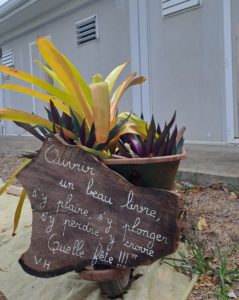 "Ouvrir
un beau livre,
s'y plaire, s'y plonger
s'y perdre, y croire
Quelle fête !!! "
VH